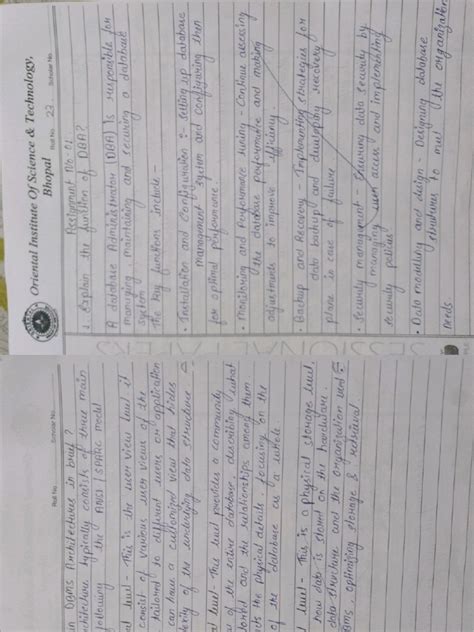 Oriental Institute Of Science & Technology,
Bhopal
Roll No. 27 Scholar No.
Assignment No 01
1. Explain the function of DBA?
A database Administrator (DBA) is responsible for
managing, maintaining and securing a database
system.
The key functions include
• Installation and Configuration :- setting up database
management system and configuring them
for optimal performance
• Monitoring and Performance tuning - Continue assessing
the database performance and making
adjustments to improve efficiency.
Backup and Recovery - Implementing strategies for
data backup and developing recovery
plans in case of failure
• Security management - Securing data security by
managing user access and implementing
security policies
• Data modelling and design - Designing database
structures to meet the organization
needs
SESSIONAL PAPERS
Roll No. Scholar No.
in DBMS Architectures in brief?
rchitecture typically consists of three main
following the ANSI / SPARC model
al level - This is the user view level it
consist of various user views of the
tailored to different users or application
can have a customized view that hides
lexity of the underlying data structure
al level - This level provides a community
w of the entire database, describing what
stored and the relationships among them
its the physical details, focusing on the
of the database as a whole
l level - This is a physical storage level.
how data is stored on the hardware.
data structure and the organization used
ams optimizing storage & retrieval